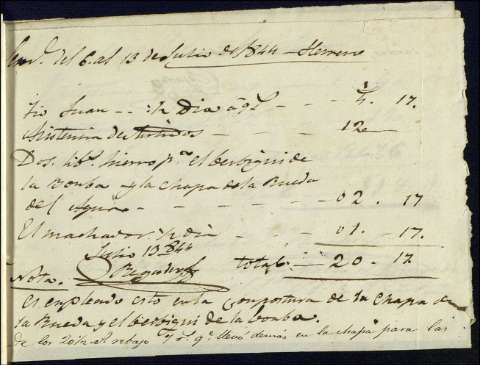 del 6 al 13 de Julio de 1844 - Herrero
Tio Juan - - ½ Dia - - - 4. 17.
Asistencia de - - - - 12
Dos lib.s hierro p.a el berbiqui de
la bomba y la chapa de la Rueda
del Agua - - - - 02. 17
El machador ½ dia - - - 01. 17.
Julio 13 844
total - 20. 17
Nota.
Es empleado esto en la Conpostura de la Chapa de
la Rueda y el berbiqui de la bonba.
de los rebajo q.e llevó demás en la chapa para las